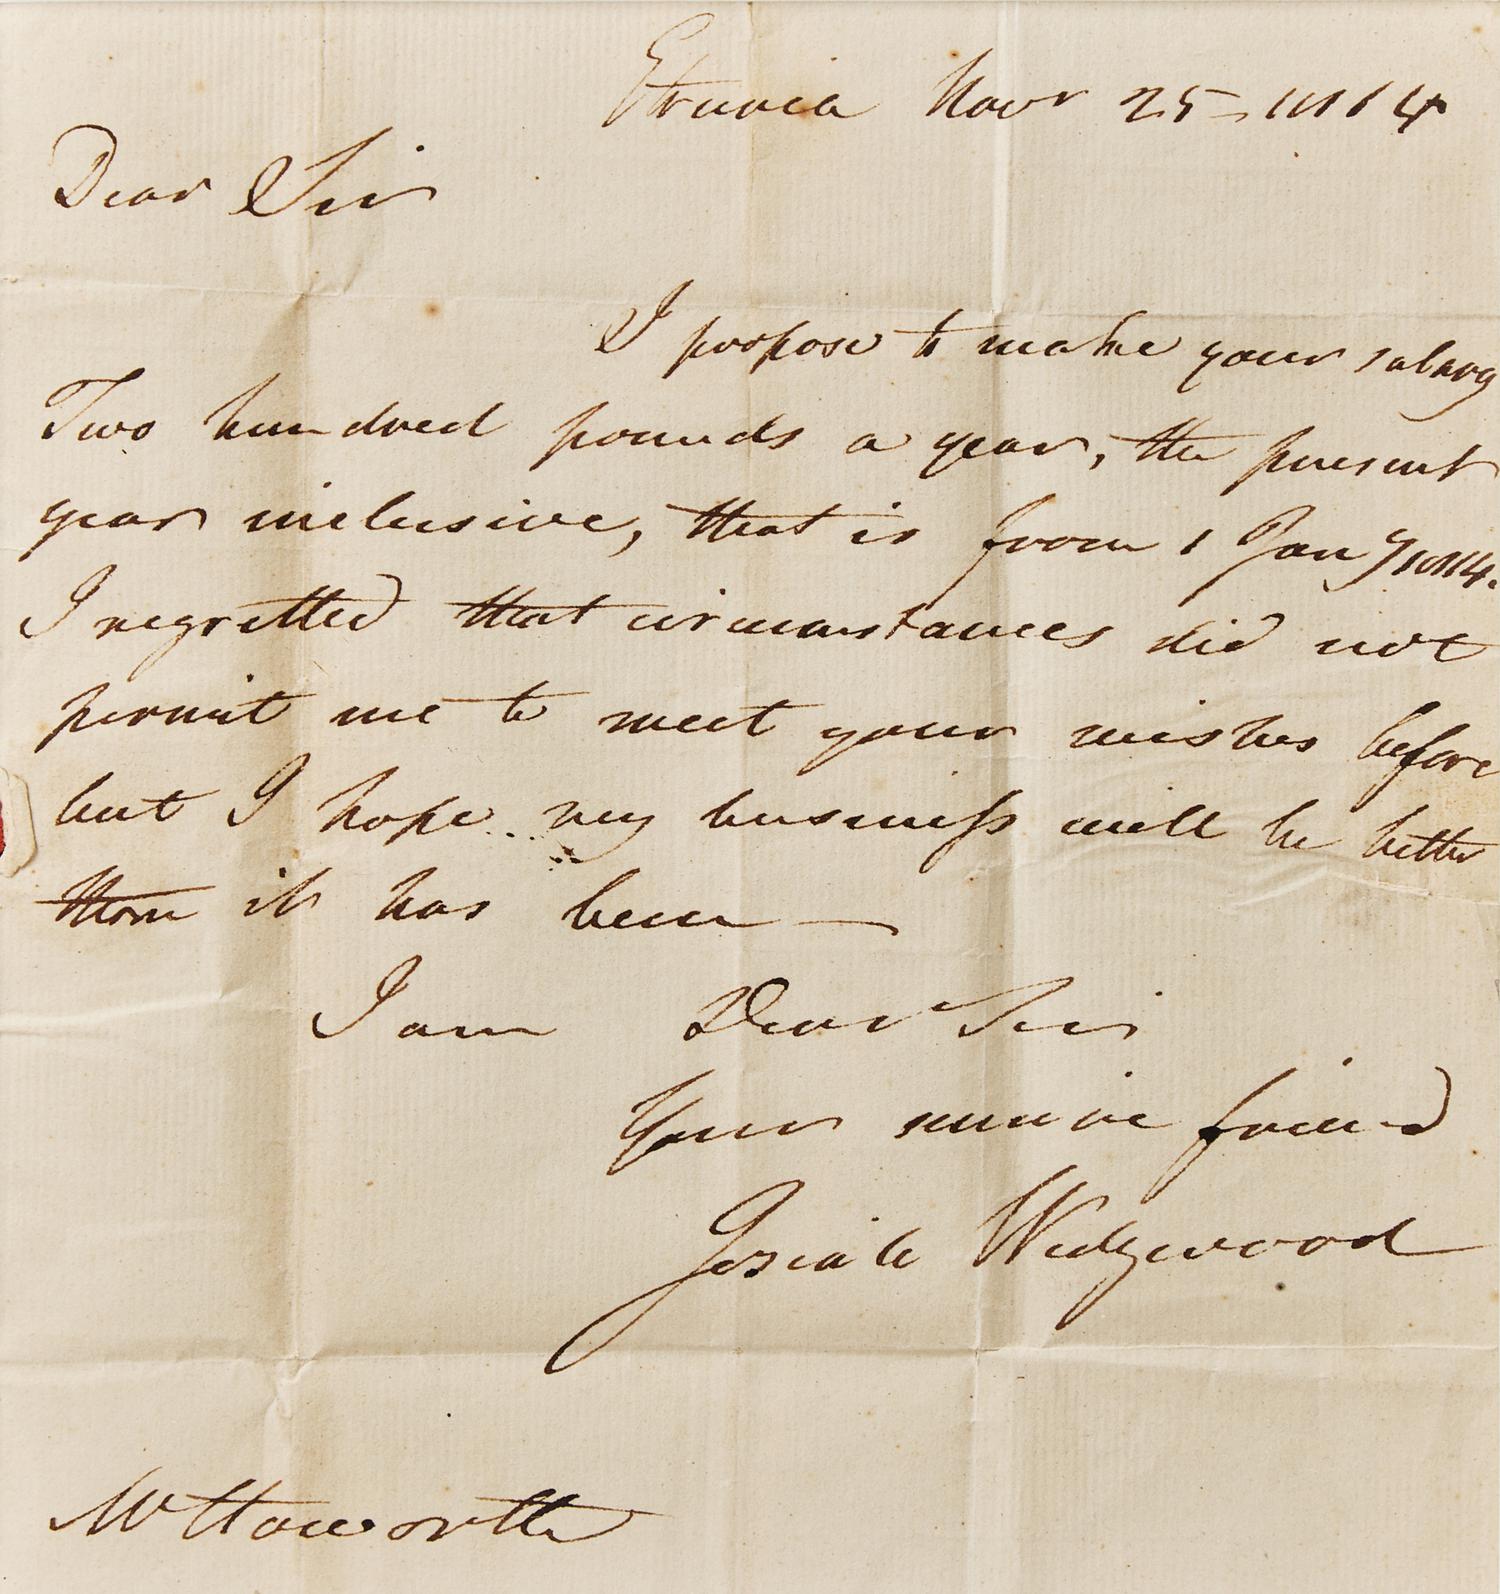 Etruria Novr 25 - 1814
Dear Sir
I propose to make your salary
Two hundred pounds a year, the present
year inclusive, that is from 1 Jany 1814.
I regretted that circumstances did not
permit me to meet your wishes before
but I hope my business will be better
than it has been —
I am Dear Sir
Your sincere friend
Josiah Wedgwood
Mr Howorth